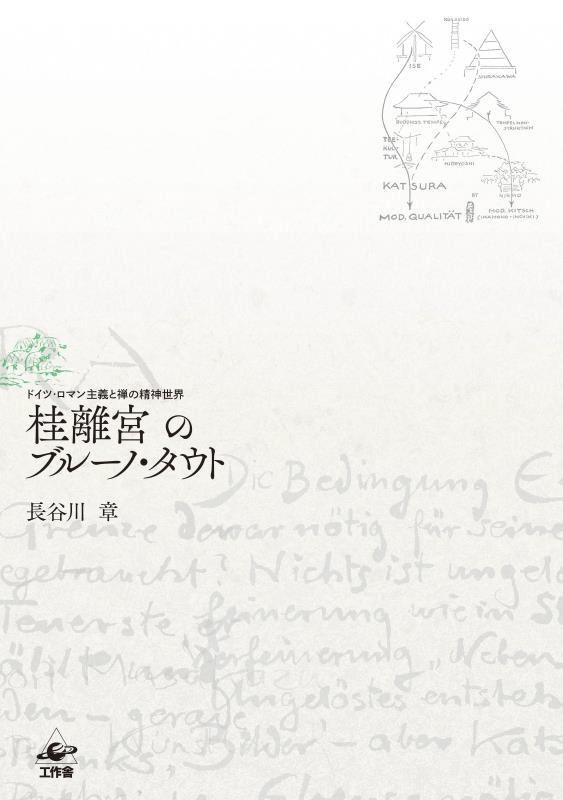 HOKKAIDO
ISE
SHIRAKAWA
BUDDHIST TEMPEL
TEMPELKON-
STRUKTION
TEE-
KUL-
TUR
HIDEYOSHI
KATSURA
NIKKO
MOD. QUALITÄT
MOD. KITSCH
(IKAMONO-INCHIKI)
ドイツ・ロマン主義と禅の精神世界
桂離宮の
ブルーノ・タウト
長谷川 章
Die Bedingung E
Grenze
nötig für seine
gebraucht? Nichts ist ungelö
Teuerste
wie in
Verfeinerung „Neben
Ungelöstes entsteh
den – gerade
Bilder – aber Kats
工作舎